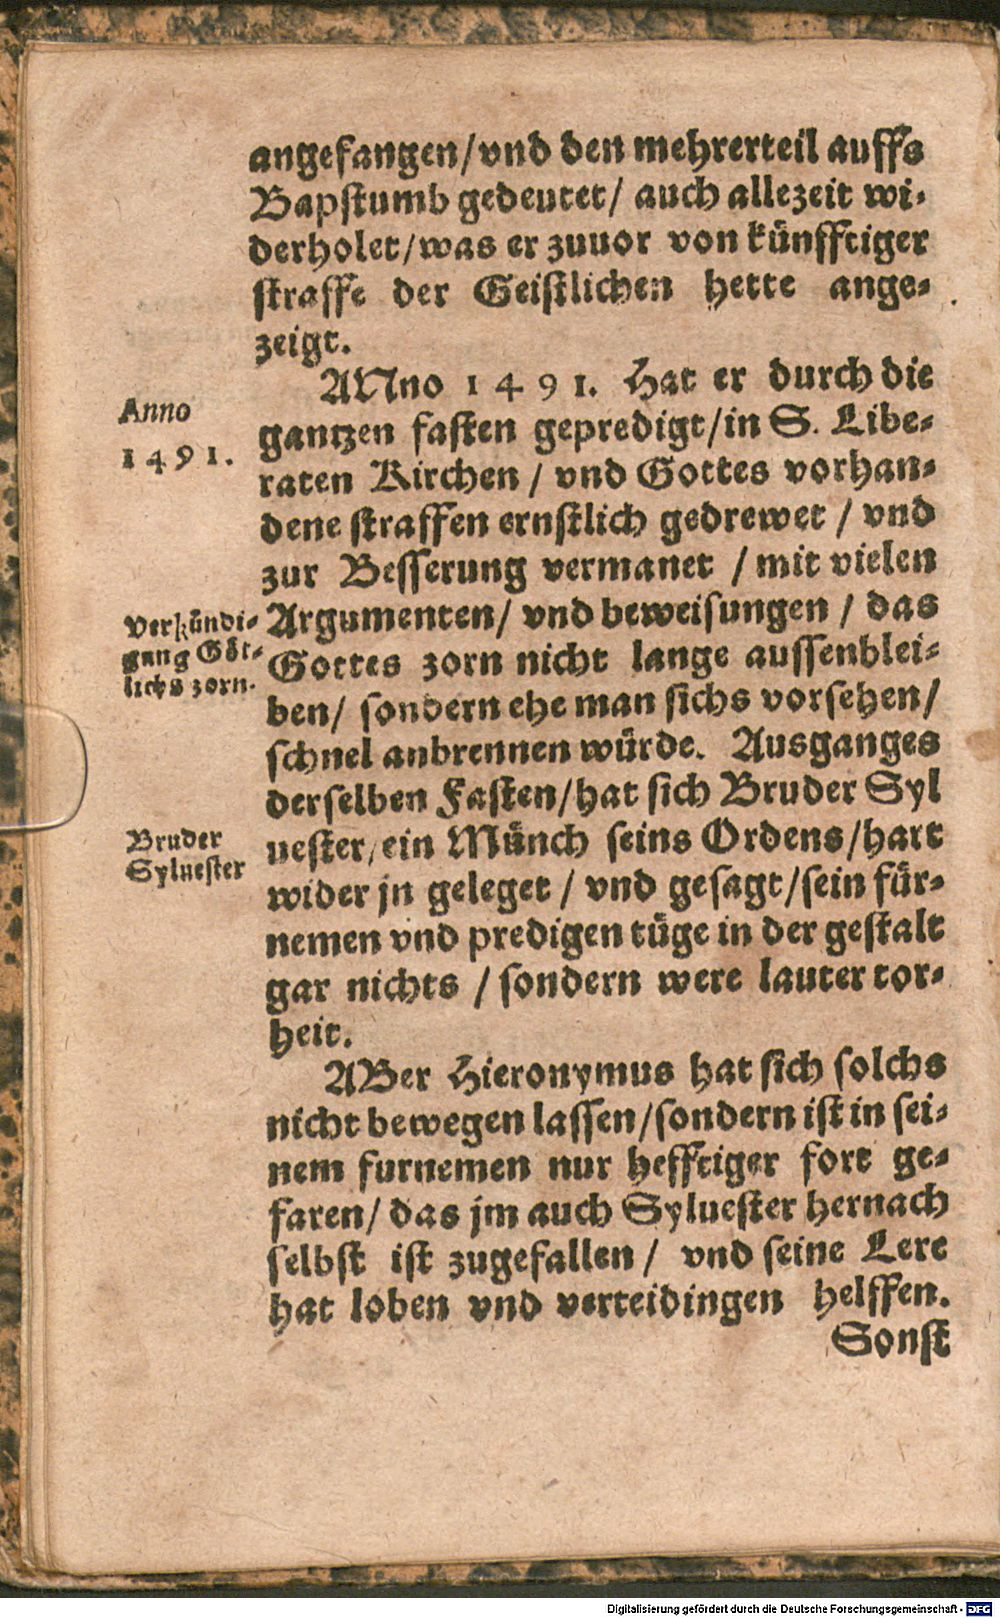 angefangen/vnd den mehrerteil auffs
Bapstumb gedeutet/ auch allezeit wi-
derholet/was er zuuor von künfftiger
straffe der Geistlichen hette ange-
zeigt.
ANno 1491. Hat er durch die
Anno
1491.
gantzen fasten gepredigt/in S. Libe-
raten Kirchen / vnd Gottes vorhan-
dene straffen ernstlich gedrewet / vnd
zur Besserung vermanet / mit vielen
Verkündi-
gung Göt-
lichs zorn.
Argumenten/ vnd beweisungen / das
Gottes zorn nicht lange aussenblei-
ben/ sondern ehe man sichs vorsehen/
schnel anbrennen würde. Ausganges
derselben Fasten/hat sich Bruder Syl
Bruder
Syluester
uester/ein Münch seins Ordens/hart
wider jn geleget / vnd gesagt/sein für-
nemen vnd predigen tüge in der gestalt
gar nichts / sondern were lauter tor-
heit.
ABer Hieronymus hat sich solchs
nicht bewegen lassen/sondern ist in sei-
nem furnemen nur hefftiger fort ge-
faren/ das jm auch Syluester hernach
selbst ist zugefallen / vnd seine Lere
hat loben vnd verteidingen helffen.
Sonst
Digitalisierung gefördert durch die Deutsche Forschungsgemeinschaft - DFG